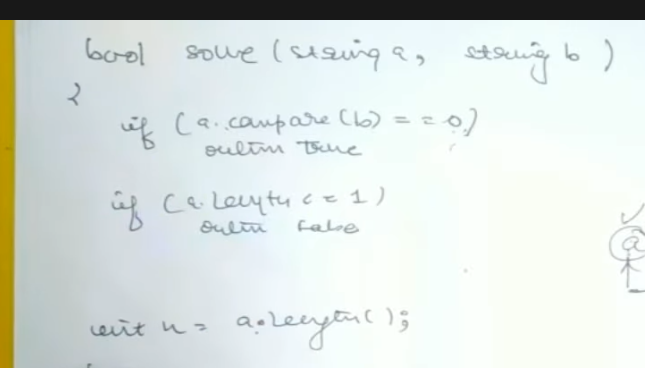 bool solve (string a, string b)
{
if (a.compare(b) == 0)
return true
if (a.length <= 1)
return false
int n = a.length();
a